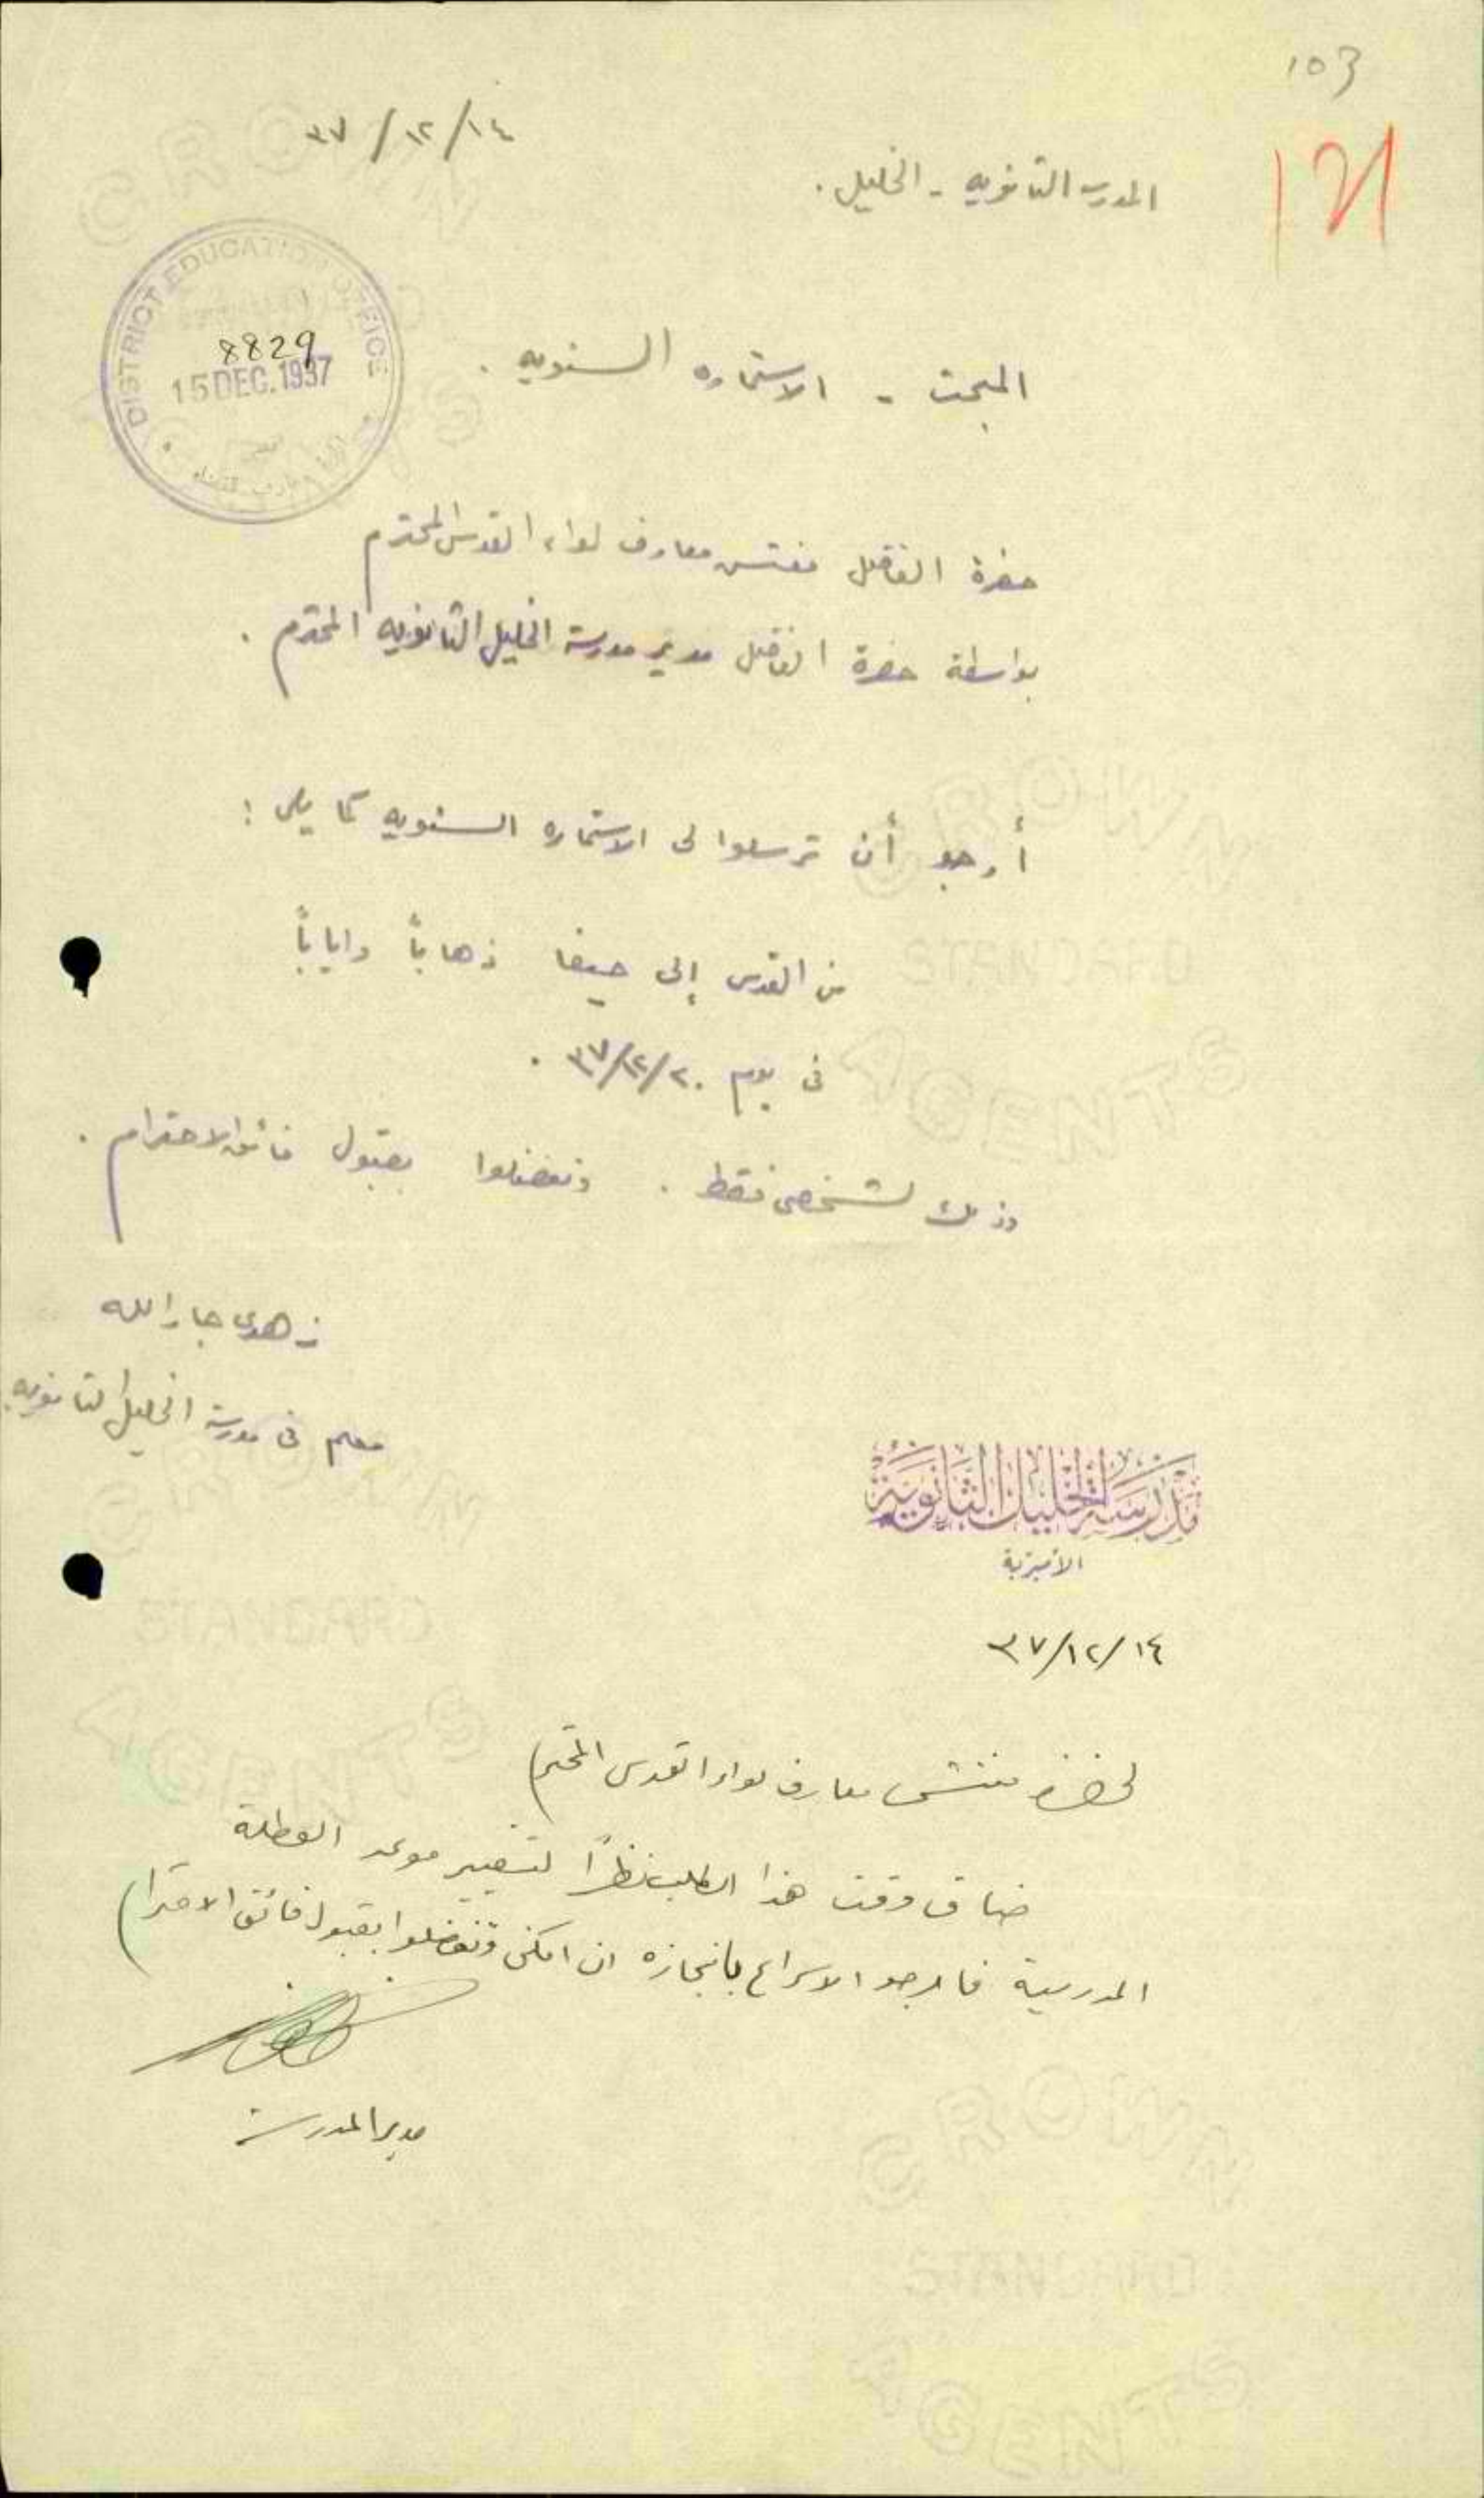 103
١٤/١٢/٣٧
المدرسه الثانويه - الخليل .
121
DISTRICT EDUCATION OFFICE
8829
15 DEC. 1937
المبحث - الاستماره السنويه .
حضرة الفاضل مفتش معارف لواء القدس المحترم
بواسطة حضرة الفاضل مدير مدرسة الخليل الثانويه المحترم .
أرجو أن ترسلوا لى الاستماره السنويه كما يلى :
من القدس إلى حيفا ذهاباً واياباً
فى يوم ٢٠/١٢/٣٧ .
وذلك لشخصى فقط . وتفضلوا بقبول فائق الاحترام .
زهدى جار الله
معلم فى مدرسة الخليل الثانويه
مدرسة الخليل الثانوية
الأميرية
١٤/١٢/٣٧
لحضرة مفتش معارف لواء القدس المحترم
ضاق وقت هذا الطلب نظراً لتغيير موعد العطلة
المدرسية فارجو الاسراع بانجازه ان امكن وتفضلوا بقبول فائق الاحترام
مدير المدرسة
CROWN
STANDARD
AGENTS